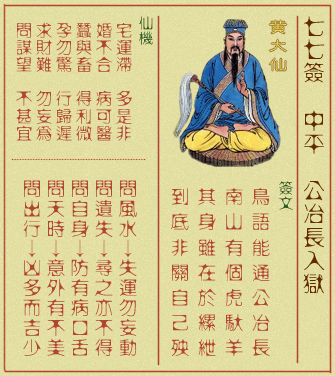 七七簽　中平　公冶長入獄
黄大仙
簽文
鳥語能通公冶長
南山有個虎馱羊
其身雖在於縲紲
到底非關自己殃
仙機
宅運滯　多是非
婚不合　病可醫
蠶與畜　得利微
孕勿驚　行歸遲
求財難　勿妄爲
問謀望　不甚宜
問風水→失運勿妄動
問遺失→尋之亦不得
問自身→防有病口舌
問天時→意外有不美
問出行→凶多而吉少